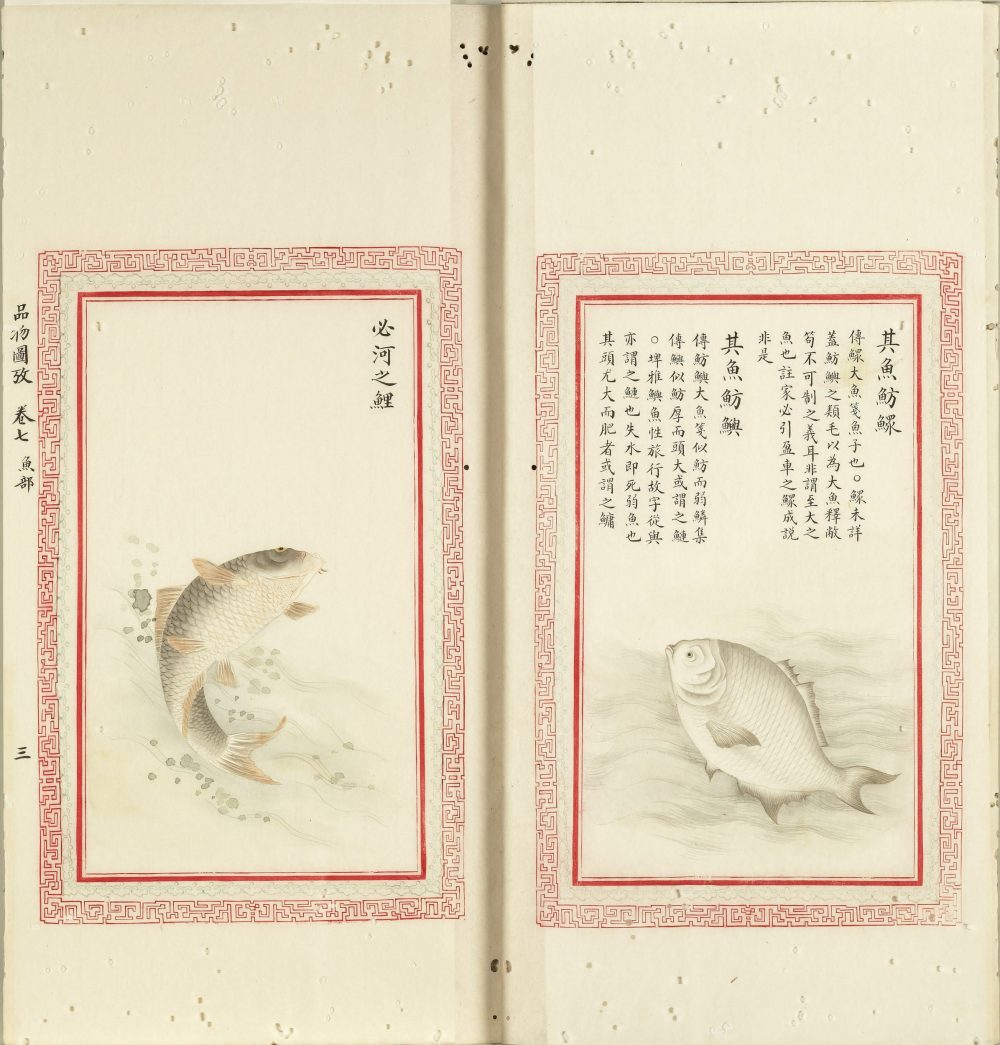 其魚魴鱮
傳鱮大魚箋魚子也○鱮未詳
蓋魴鱮之類毛以為大魚釋敝
笱不可制之義耳非謂至大之
魚也註家必引盈車之鰥成說
非是
其魚魴鱮
傳魴鱮大魚箋似魴而弱鱗集
傳鱮似魴厚而頭大或謂之鰱
○埤雅鱮魚性旅行故字從與
亦謂之鰱也失水即死弱魚也
其頭尤大而肥者或謂之鱅
必河之鯉
品物圖攷 卷七 魚部
三